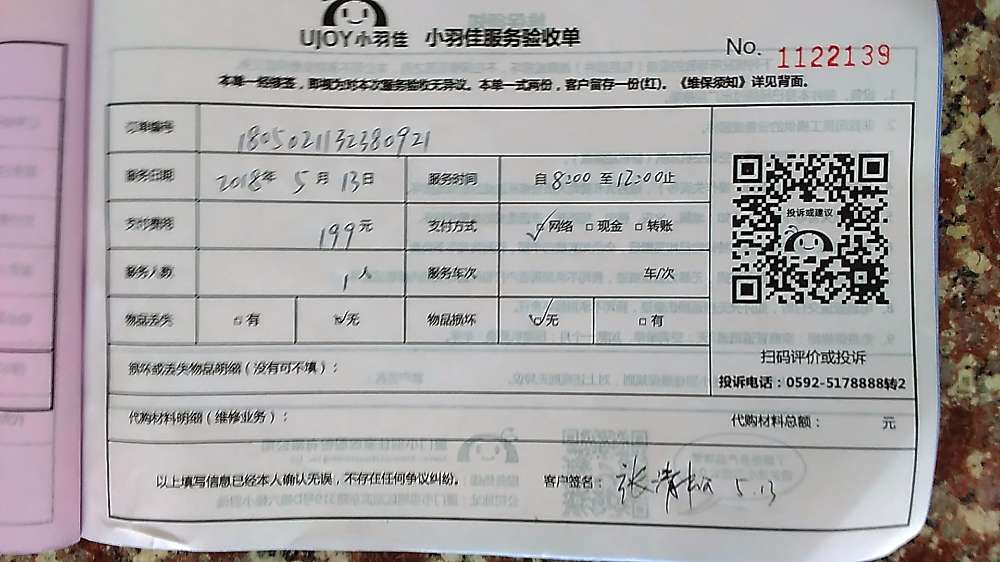 UJOY小羽佳 小羽佳服务验收单
No. 1122139
本单一经签签，即视为对本次服务验收无异议。本单一式两份，客户留存一份(红)。《维保须知》详见背面。
订单编号 1805021132380921
服务日期 2018年 5月 13日 服务时间 自 8:00 至 12:00 止
支付费用 199元 支付方式 ☑网络 □现金 □转账
服务人数 1人 服务车次 车/次
物品丢失 □有 ☑无 物品损坏 ☑无 □有
投诉或建议
扫码评价或投诉
投诉电话：0592-5178888转2
损坏或丢失物品明细（没有可不填）：
代购材料明细（维修业务）： 代购材料总额： 元
以上填写信息已经本人确认无误，不存在任何争议纠纷。 客户签名： 张清松 5.13